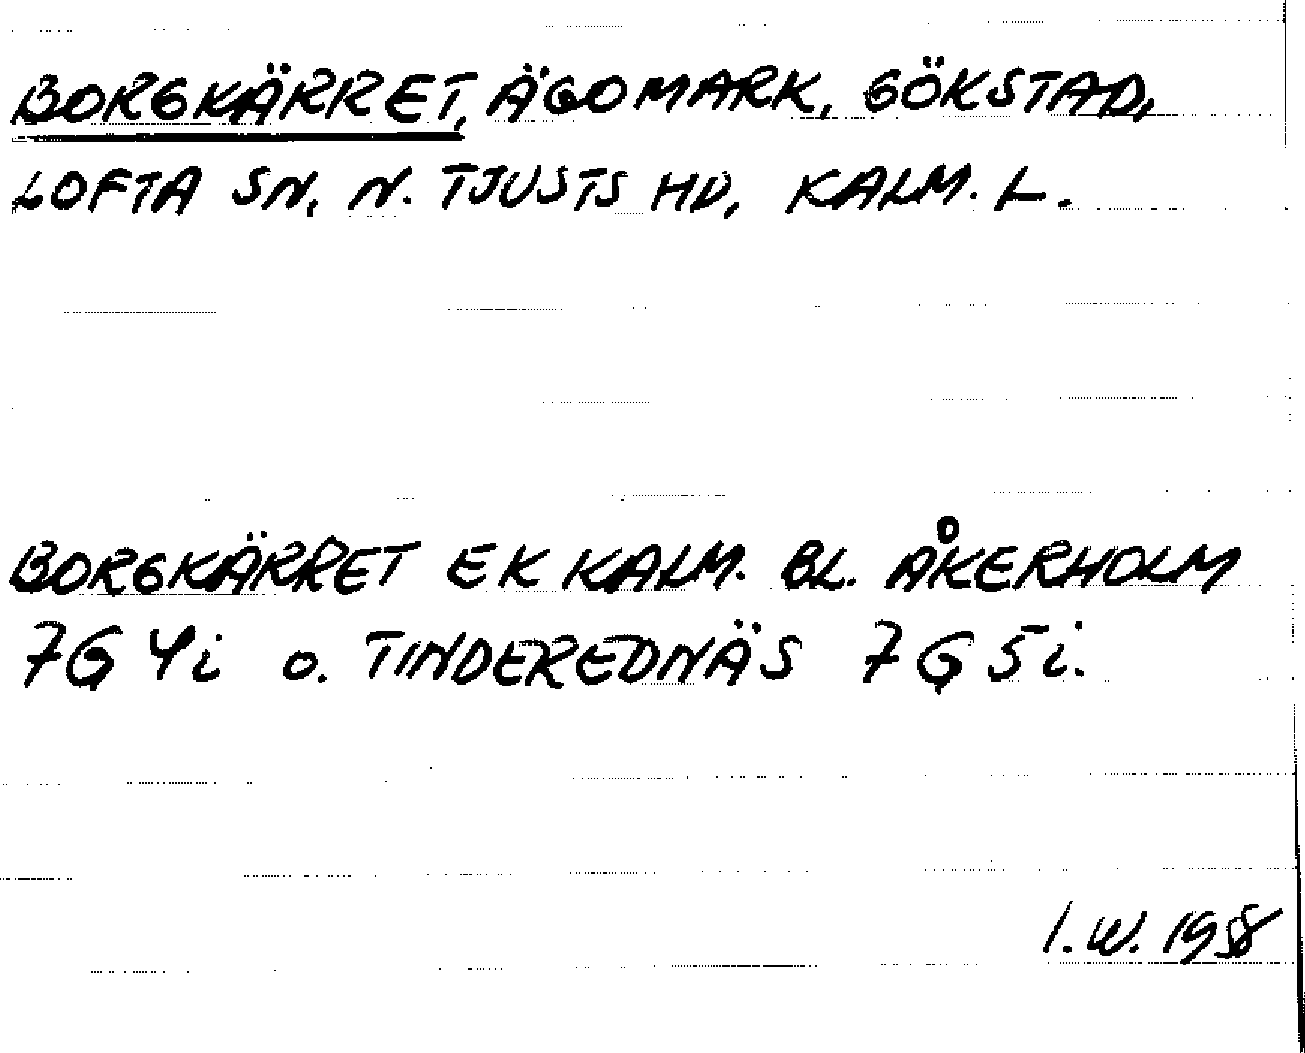 BORGKÄRRET, ÄGOMARK, GÖKSTAD,
LOFTA SN, N. TJUSTS HD, KALM. L.
BORGKÄRRET EK KALM. BL. ÅKERHOLM
7G 4i o. TINDEREDNÄS 7G 5i.
I.W. 1958